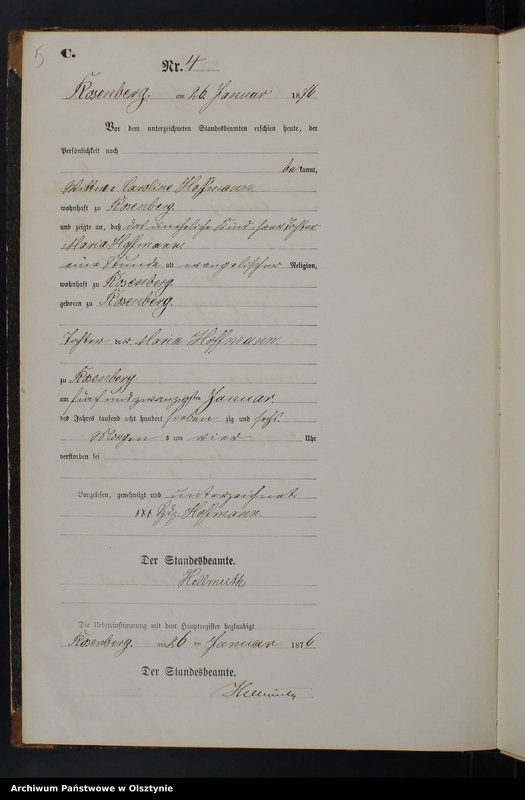 5
C.
Nr. 4
Rosenberg. am 26. Januar 1876
Vor dem unterzeichneten Standesbeamten erschien heute, der
Persönlichkeit nach
bekannt,
Wittwe Caroline Hoffmann
wohnhaft zu Rosenberg
und zeigte an, daß das uneheliche Kind ihrer Tochter
Maria Hoffmann
eine Stunde alt evangelischer Religion,
wohnhaft zu Rosenberg.
geboren zu Rosenberg.
Tochter der Maria Hoffmann
zu Rosenberg
am fünf und zwanzigsten Januar
des Jahres tausend acht hundert sieben zig und sechs
Morgens um vier Uhr
verstorben sei
Vorgelesen, genehmigt und unterzeichnet
xxx Hdz. Hoffmann.
Der Standesbeamte.
Hellmuth
Die Uebereinstimmung mit dem Hauptregister beglaubigt
Rosenberg. am 26 ten Januar 1876
Der Standesbeamte.
Hellmuth
Archiwum Państwowe w Olsztynie